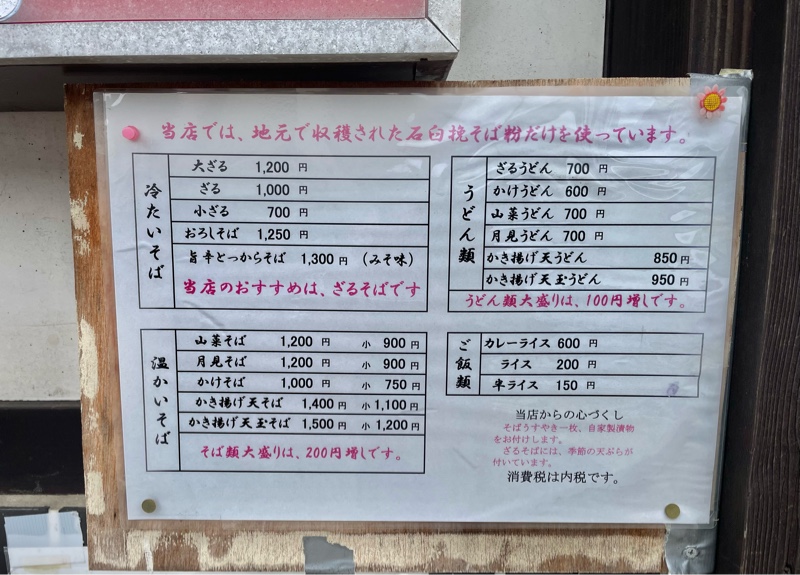 当店では、地元で収穫された石臼挽そば粉だけを使っています。
冷たいそば
大ざる 1,200 円
ざる 1,000 円
小ざる 700 円
おろしそば 1,250 円
旨辛とっからそば 1,300 円 (みそ味)
当店のおすすめは、ざるそばです
温かいそば
山菜そば 1,200 円 小 900 円
月見そば 1,200 円 小 900 円
かけそば 1,000 円 小 750 円
かき揚げ天そば 1,400 円 小 1,100 円
かき揚げ天玉そば 1,500 円 小 1,200 円
そば類大盛りは、200円増しです。
うどん類
ざるうどん 700 円
かけうどん 600 円
山菜うどん 700 円
月見うどん 700 円
かき揚げ天うどん 850 円
かき揚げ天玉うどん 950 円
うどん類大盛りは、100円増しです。
ご飯類
カレーライス 600 円
ライス 200 円
半ライス 150 円
当店からの心づくし
そばうすやき一枚、自家製漬物
をお付けします。
ざるそばには、季節の天ぷらが
付いています。
消費税は内税です。